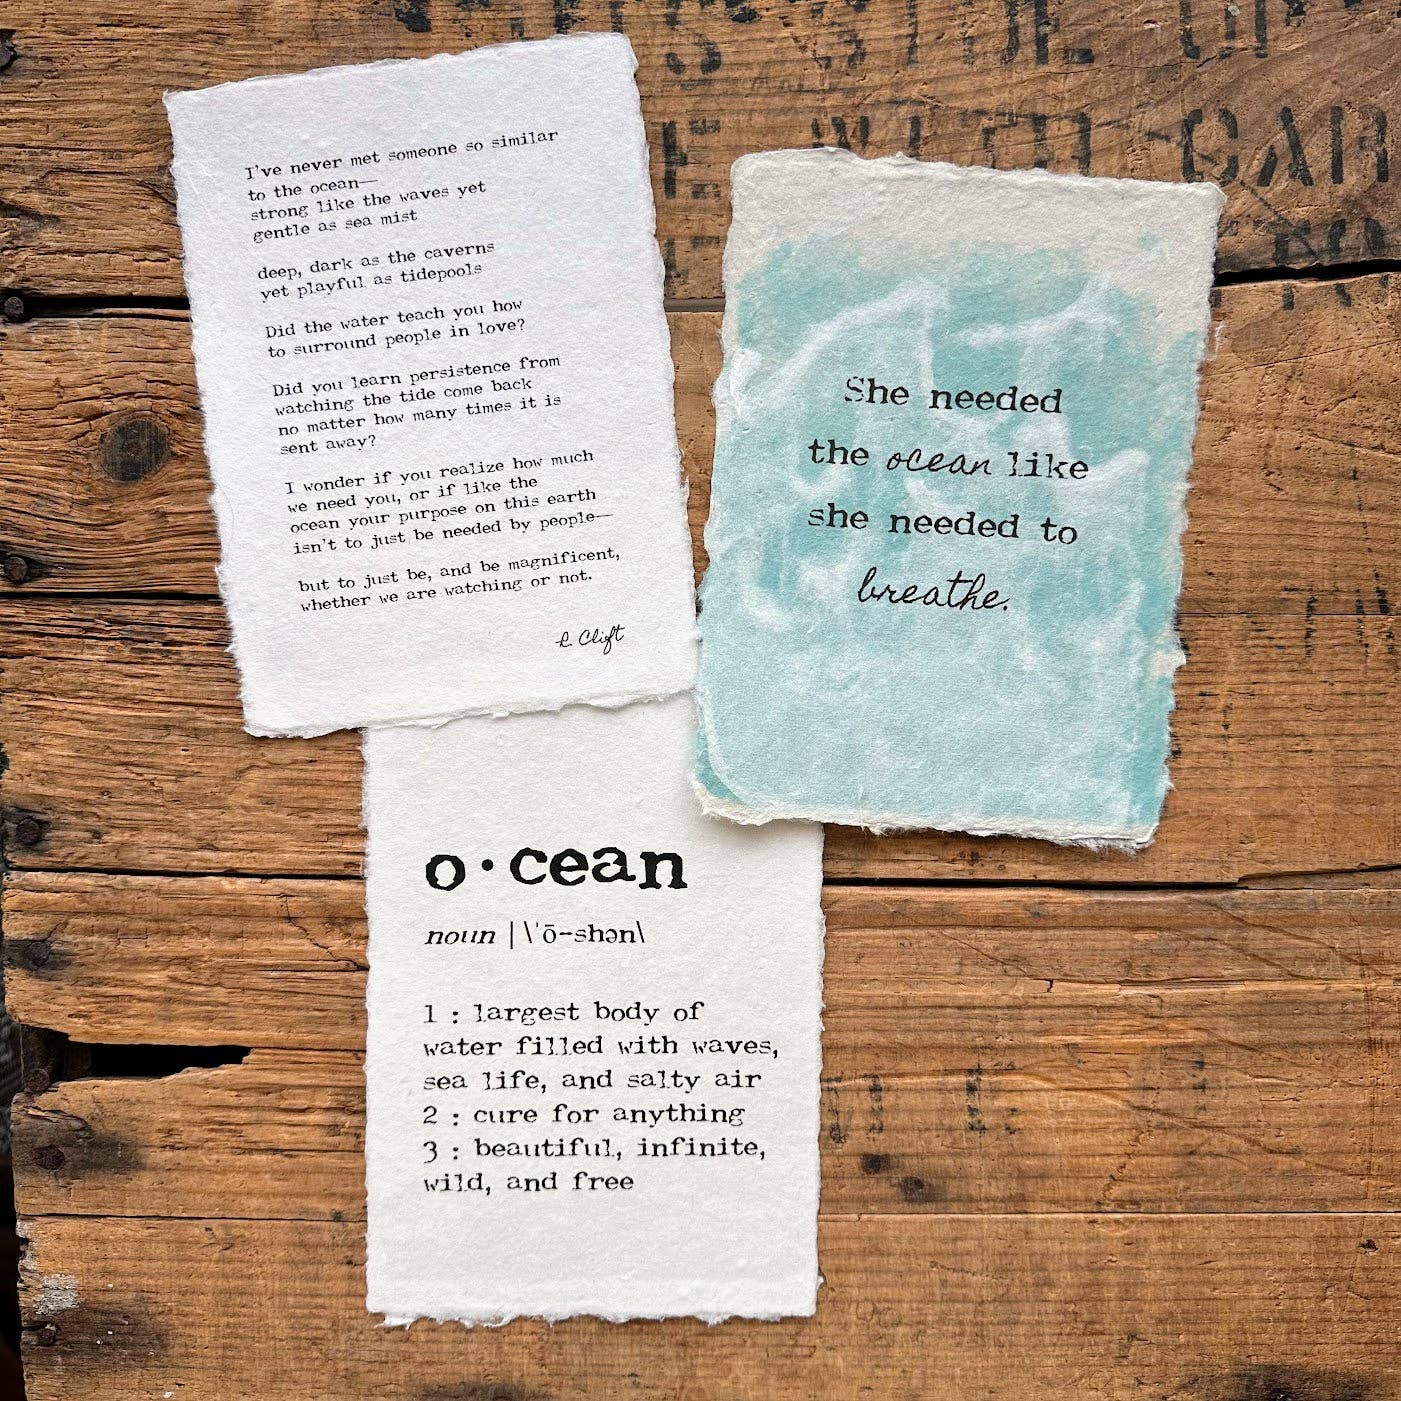 I've never met someone so similar
to the ocean—
strong like the waves yet
gentle as sea mist
deep, dark as the caverns
yet playful as tidepools
Did the water teach you how
to surround people in love?
Did you learn persistence from
watching the tide come back
no matter how many times it is
sent away?
I wonder if you realize how much
we need you, or if like the
ocean your purpose on this earth
isn't to just be needed by people—
but to just be, and be magnificent,
whether we are watching or not.
r. Clift
She needed
the ocean like
she needed to
breathe.
o·cean
noun | \ˈō-shən\
1 : largest body of
water filled with waves,
sea life, and salty air
2 : cure for anything
3 : beautiful, infinite,
wild, and free